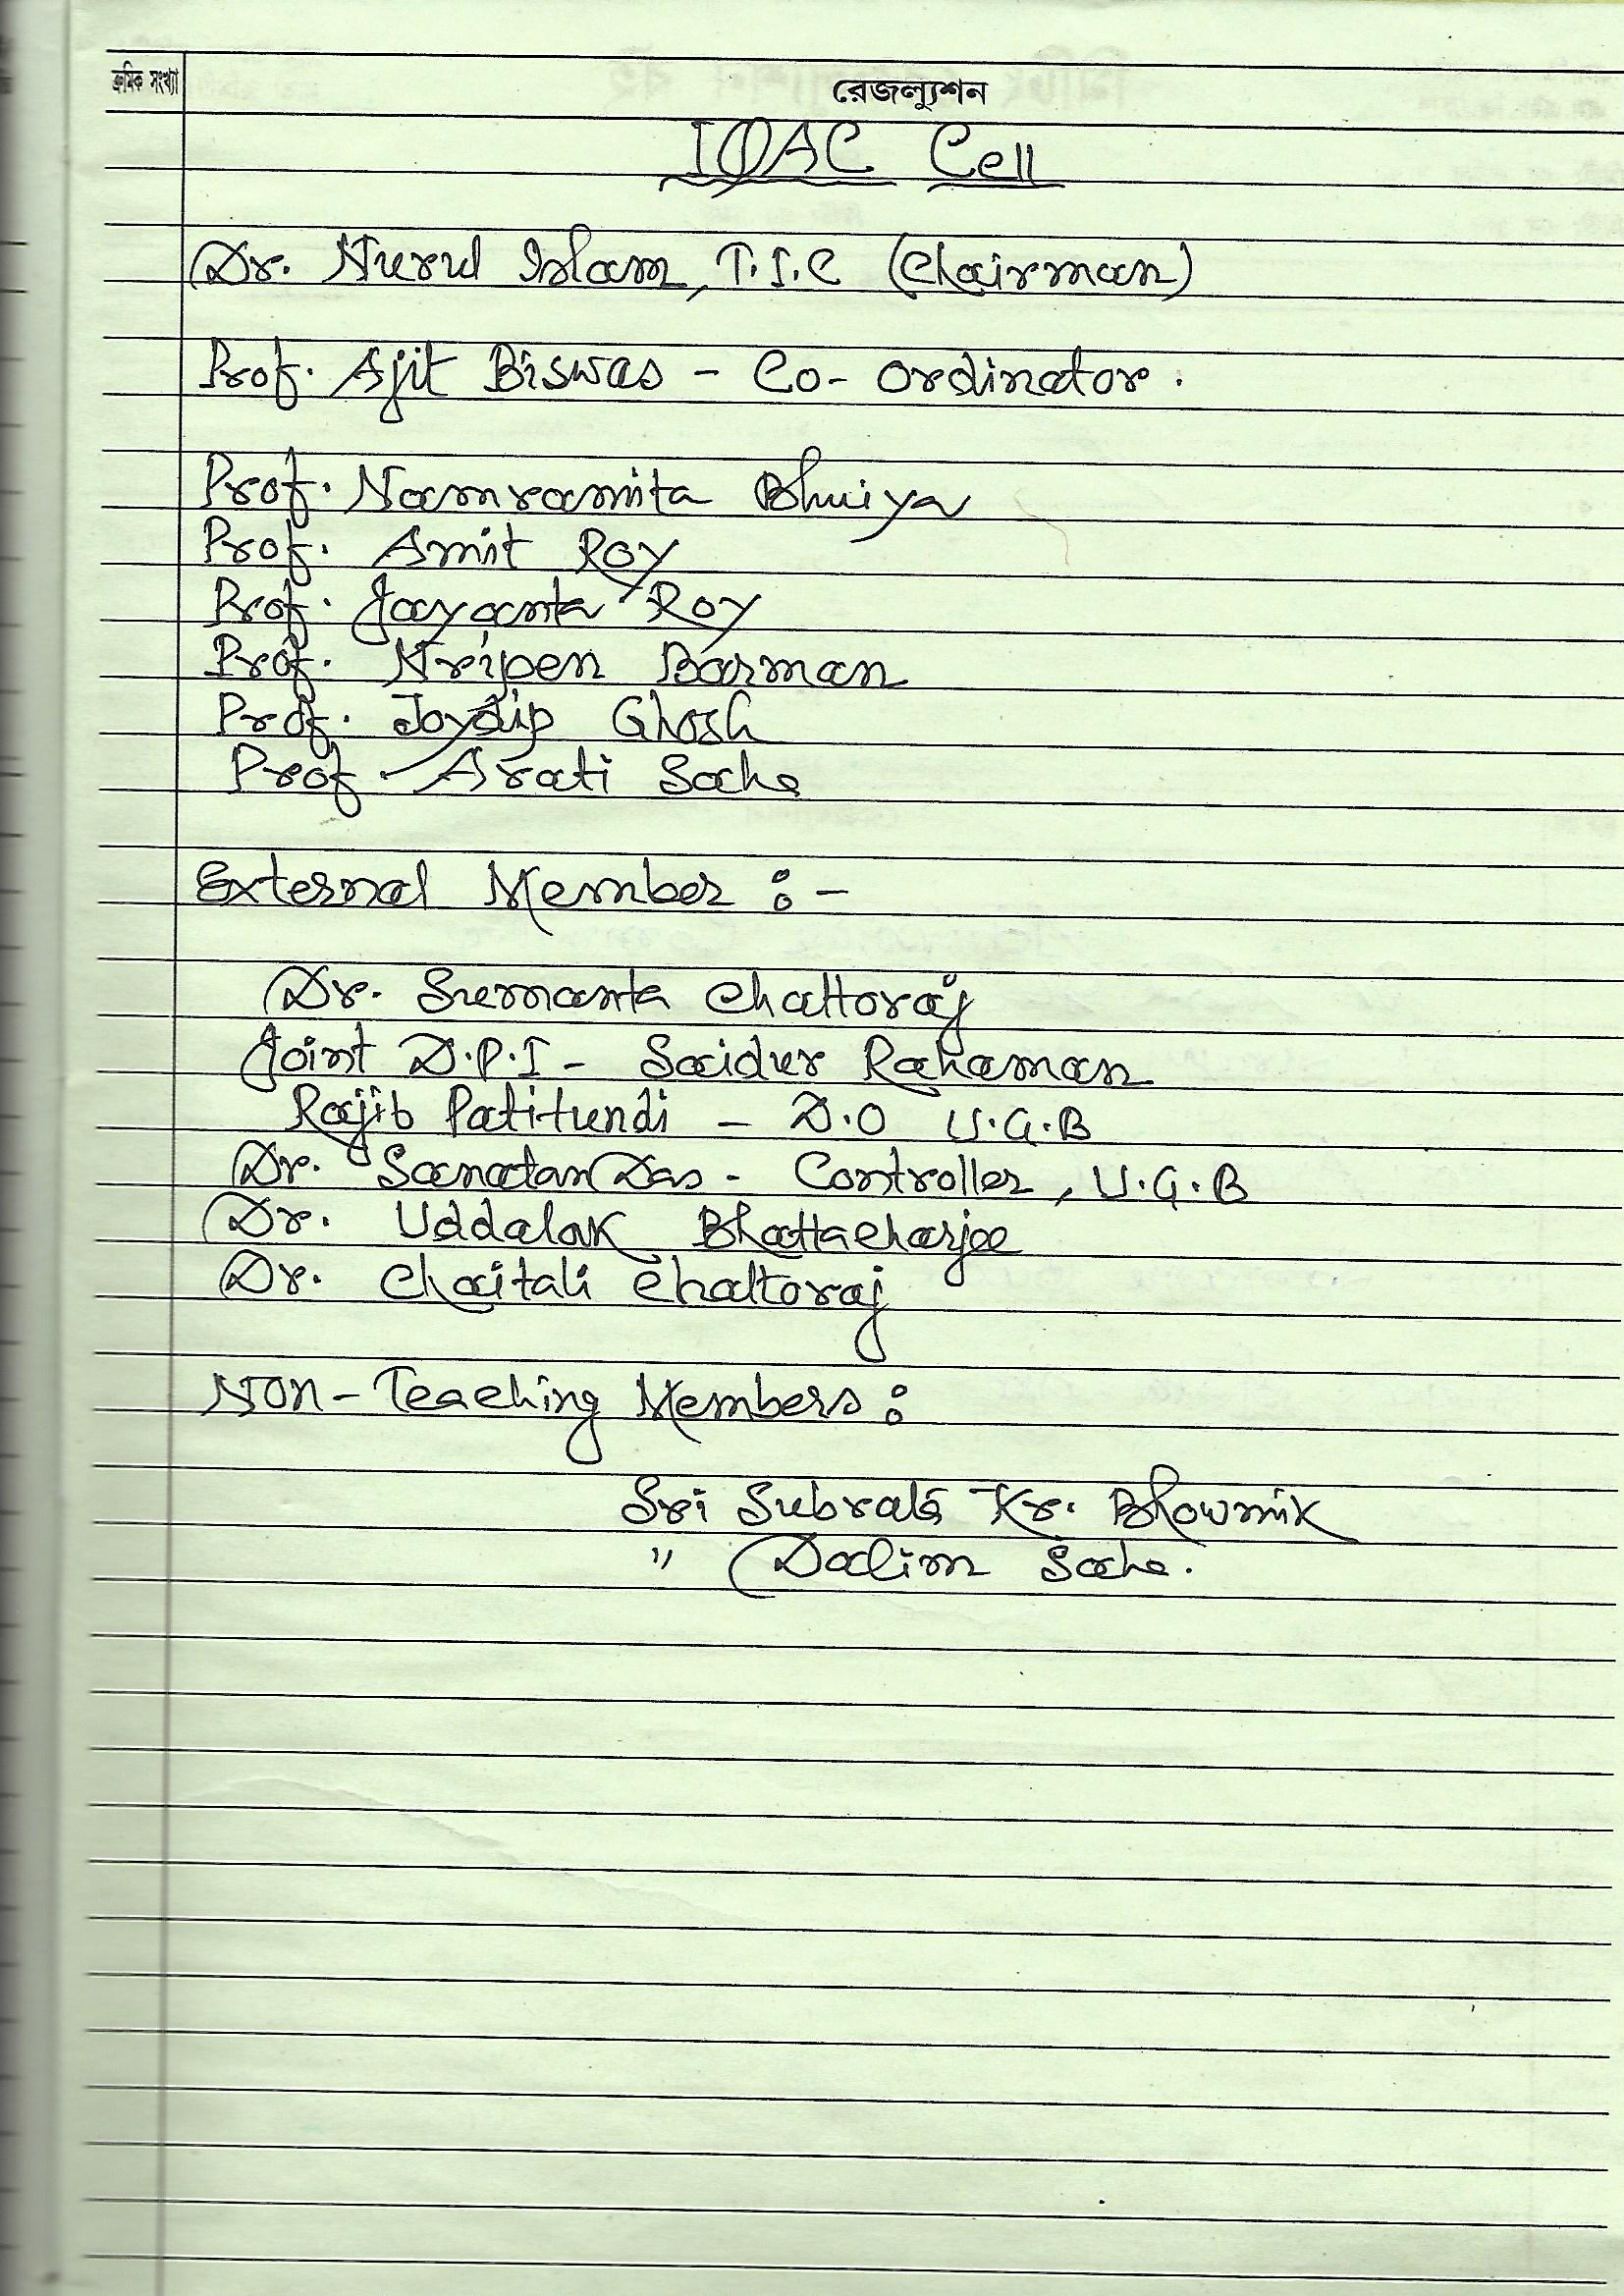 ক্রমিক সংখ্যা
রেজল্যুশন
IQAC Cell
Dr. Nurul Islam, T.I.C (Chairman)
Prof. Ajit Biswas - Co-ordinator.
Prof. Namramita Bhuiya
Prof. Amit Roy
Prof. Jayanta Roy
Prof. Nripen Barman
Prof. Joydip Ghosh
Prof. Arati Saha
External Member :-
Dr. Sumanta Chattoraj
Joint D.P.I - Saidur Rahaman
Rajib Patitundi - D.O U.G.B
Dr. Sanatan Das - Controller, U.G.B
Dr. Uddalak Bhattacharjee
Dr. Chaitali Chattoraj
Non-Teaching Members :
Sri Subrata Kr. Bhowmik
" Dalim Saha.